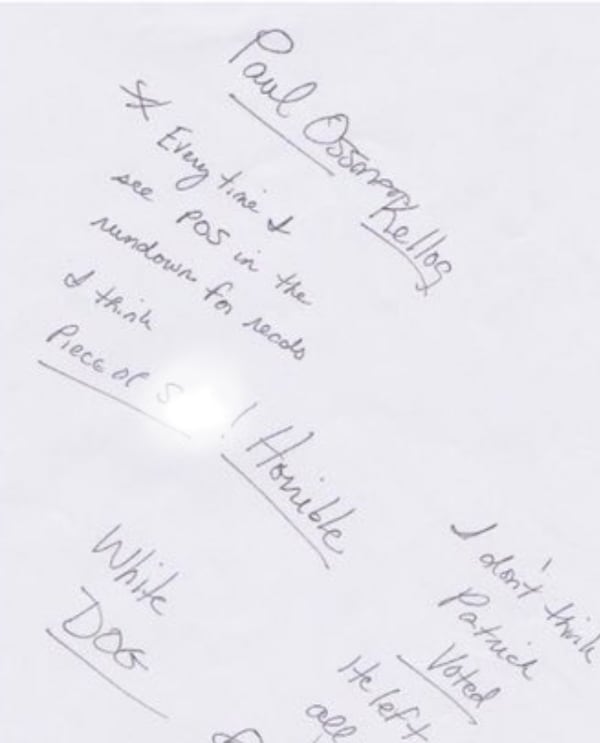 Paul Ossmann
Kellog
* Every time I
see POS in the
rundown for reads
I think
Piece of S
! Horrible
White
DOG
I don't think
Patrick
Voted
He left
all